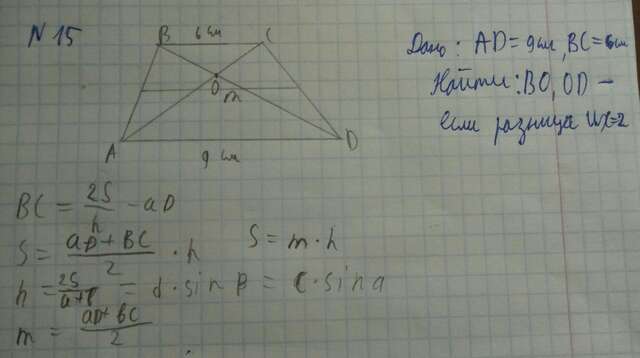 N 15
B 6 см C
O
m
A D
9 см
Дано: AD = 9 см, BC = 6 см
Найти: BO, OD —
если разница их = 2
BC = 2S/h - aD
S = (aD + BC)/2 · h   S = m · h
h = 2S/a+b = d · sin β = c · sin a
m = (aD + BC)/2